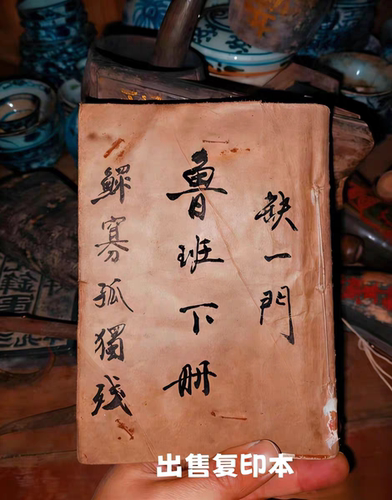 缺一門
魯班下册
鰥寡孤獨残
出售复印本